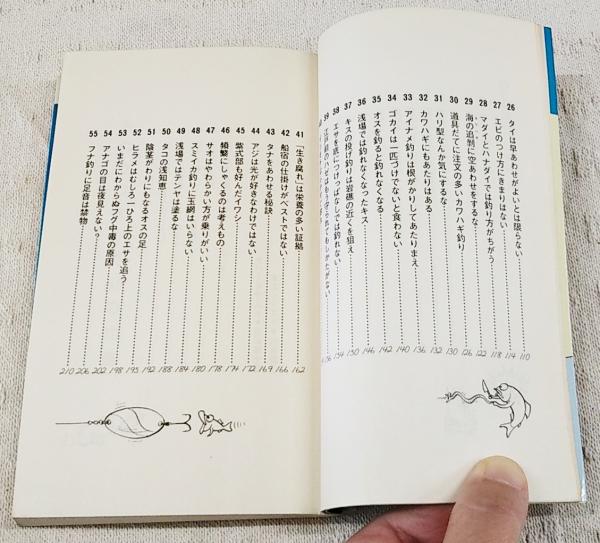 26 タイは早あわせがよいとは限らない 110
27 エビのつけ方にきまりはない 114
28 マダイとハナダイでは釣り方がちがう 118
29 海の追剝に空あわせをするな 122
30 道具だてに注文の多いカワハギ釣り 126
31 ハリ型なんか気にするな 128
32 カワハギにもあたりはある 131
33 アイナメ釣りは根がかりしてあたりまえ 132
34 ゴカイは一匹づけでないと食わない 136
35 オスを釣ると釣れなくなる 140
36 浅場では釣れなくなったキス 142
37 キスの投げ釣りは岩礁の近くを狙え 146
38 エサを底につけっぱなしでは釣れない 150
39 154
41 「生き腐れ」は栄養の多い証拠 162
42 船宿の仕掛けがベストではない 166
43 タナをあわせる秘訣 169
44 アジは光が好きなわけではない 172
45 紫式部も好んだイワシ 174
46 頻繁にしゃくるのは考えもの 178
47 サオはやわらかい方が乗りがいい 180
48 スミイカ釣りに玉網はいらない
49 浅場ではテンヤは塗るな 184
50 タコの浅知恵 188
51 陰茎がわりにもなるオスの足 192
52 ヒラメはむしろ一ひろ上のエサを追う 195
53 いまだにわからぬフグ中毒の原因 198
54 アナゴの目は夜見えない? 202
55 フナ釣りに足音は禁物 206
210